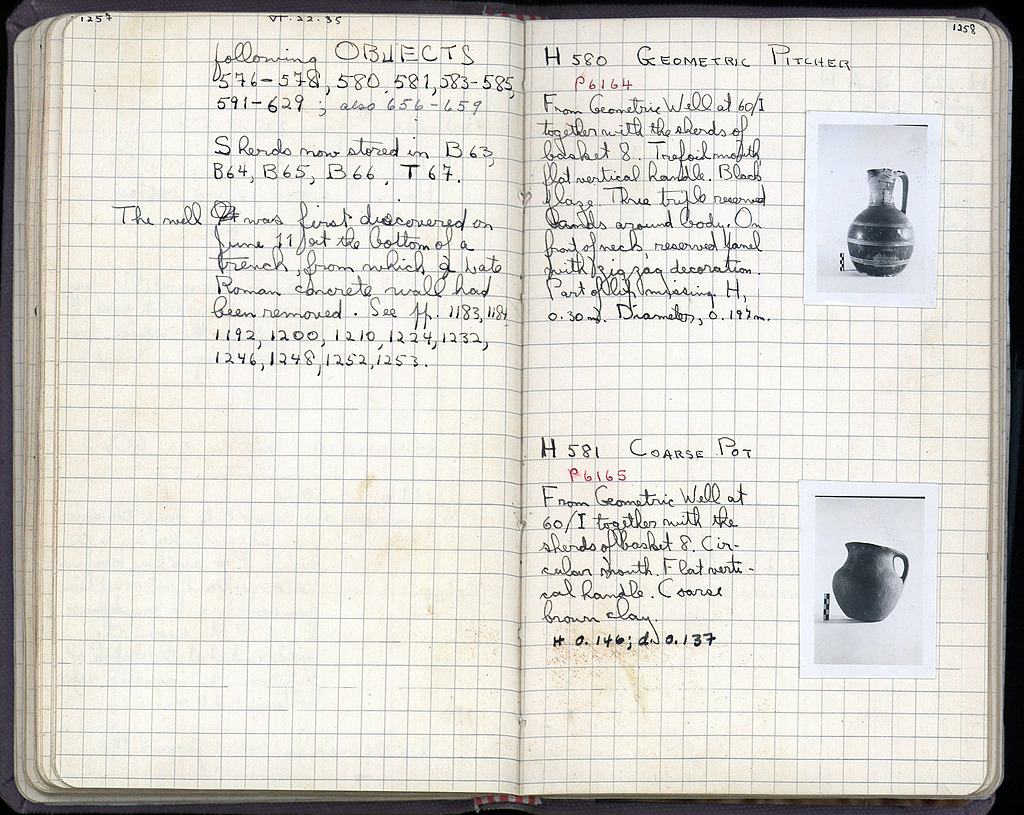 1257
VI.22.35
following OBJECTS
576-578, 580, 581, 583-585,
591-629; also 656-659
Sherds now stored in B63,
B64, B65, B66, T67.
The well was first discovered on
June 11 at the bottom of a
trench, from which a Late
Roman concrete wall had
been removed. See pp. 1183, 1184,
1192, 1200, 1210, 1224, 1232,
1246, 1248, 1252, 1253.
1258
H 580 GEOMETRIC PITCHER
P6164
From Geometric Well at 60/I
together with the sherds of
basket 8. Trefoil mouth,
flat vertical handle. Black
glaze. Three triple reserved
bands around body. On
front of neck, reserved panel
with zigzag decoration.
Part of lip missing. H,
0.30m. Diameter, 0.197m.
H 581 COARSE POT
P6165
From Geometric Well at
60/I together with the
sherds of basket 8. Cir-
cular mouth. Flat verti-
cal handle. Coarse
brown clay.
H 0.146; d. 0.137